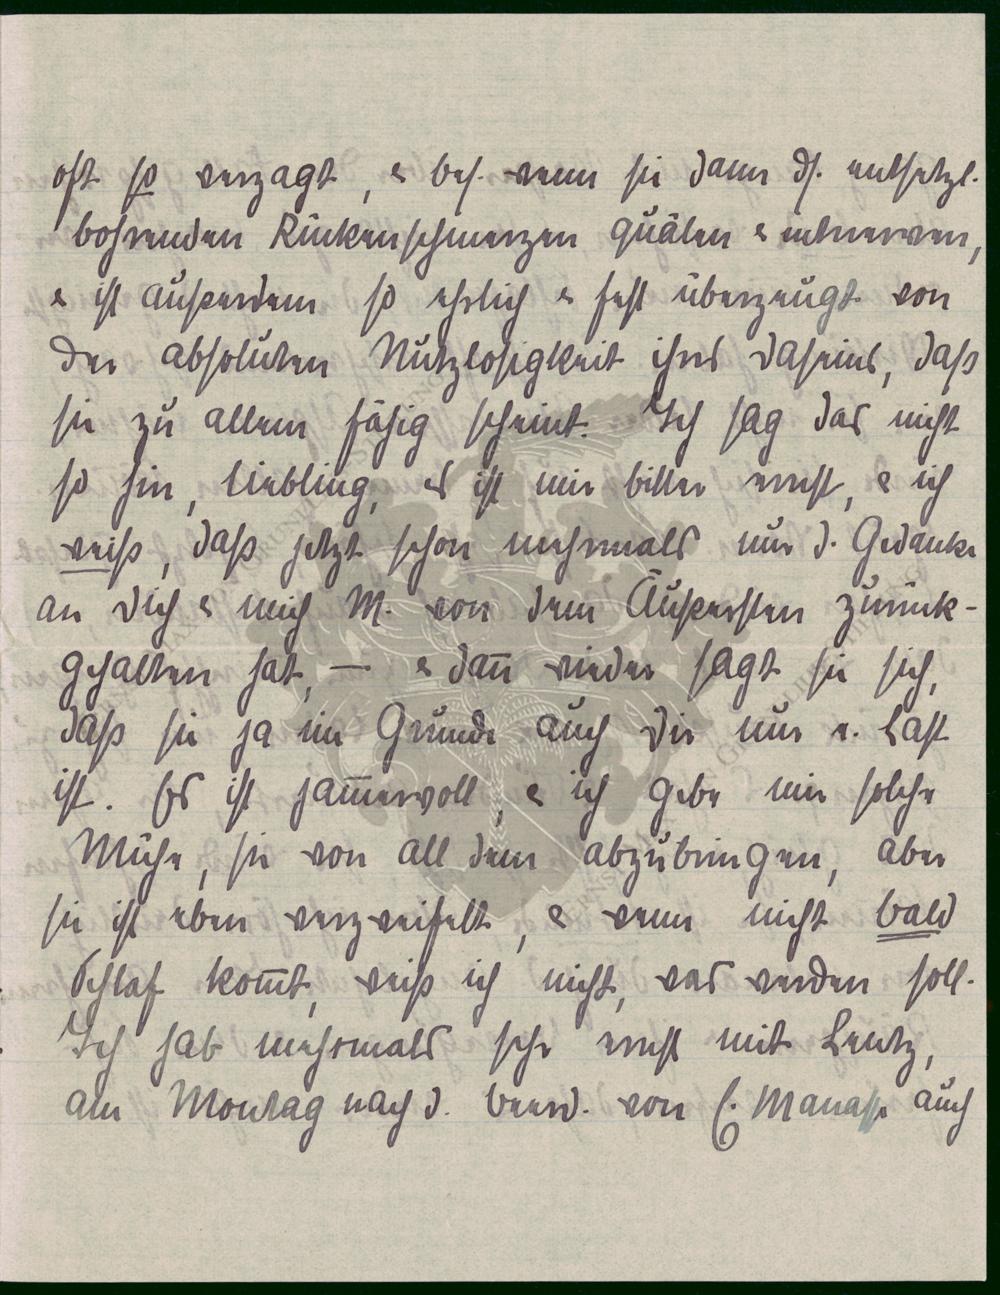 oft so verzagt, & bes. wenn sie dann ds. entsetzl.
bohrenden Rückenschmerzen quälen & entnerven,
& ist außerdem so ehrlich & fest überzeugt von
der absoluten Nutzlosigkeit ihres Daseins, daß
sie zu allem fähig scheint. Ich sag das nicht
so hin, Liebling, es ist mir bitter ernst, & ich
weiß, daß jetzt schon mehrmals nur d. Gedanke
an Dich & mich M. von dem Äußersten zurück-
gehalten hat, — & dan̅ wieder sagt sie sich,
daß sie ja im Grunde auch Dir nur e. Last
ist. Es ist jam̅ervoll, & ich gebe mir solche
Mühe, sie von all dem abzubringen, aber
sie ist eben verzweifelt, & wenn nicht bald
Schlaf kom̅t, weiß ich nicht, was werden soll.
Ich hab mehrmals sehr ernst mit Lentz,
am Montag nach d. Beerd. von C. Manasse auch